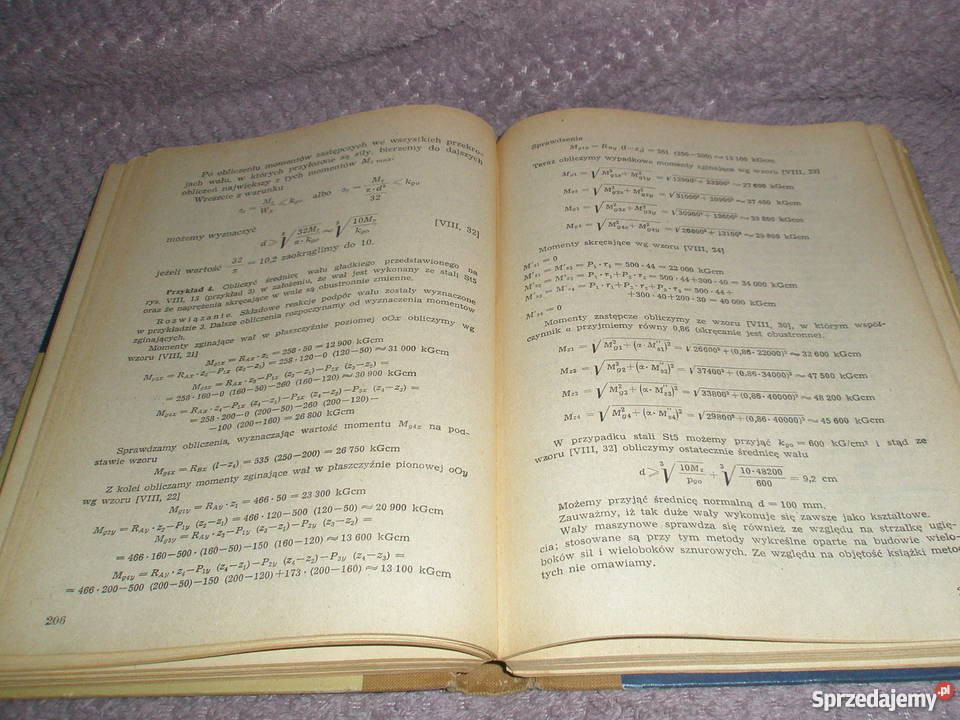 Po obliczeniu momentów zastępczych we wszystkich przekro-
jach wału, w których przyłożone są siły, bierzemy do dalszych
obliczeń największy z tych momentów Mz max.
Wreszcie z warunku
albo
możemy wyznaczyć
d ≥ ∛(32Mz / π·kgo) ≈ ∛(10Mz / kgo) [VIII, 32]
jeżeli wartość 32/π = 10,2 zaokrąglimy do 10.
Przykład 4. Obliczyć średnicę wału gładkiego przedstawionego na
rys. VIII, 13 (przykład 3) w założeniu, że wał jest wykonany ze stali St5
oraz że naprężenia skręcające w wale są obustronnie zmienne.
Rozwiązanie. Składowe reakcje podpór wału zostały wyznaczone
w przykładzie 3. Dalsze obliczenia rozpoczynamy od wyznaczenia momentów
zginających.
Momenty zginające wał w płaszczyźnie poziomej oOx obliczymy wg
wzoru [VIII, 21]
Mg1x = RAx · z1 = 258·50 = 12 900 kGcm
Mg2x = RAx·z2—P1x (z2—z1) = 258·120—0 (120—50) ≈ 31 000 kGcm
Mg3x = RAx·z3—P1x (z3—z1)—P2x (z3—z2) =
= 258·160—0 (160—50)—260 (160—120) ≈ 30 900 kGcm
Mg4x = RAx·z4—P1x (z4—z1)—P2x (z4—z2)—P3x (z4—z3) =
= 258·200—0 (200—50)—260 (200—120)—
—100 (200—160) = 26 800 kGcm
Sprawdzamy obliczenia, wyznaczając wartość momentu Mg4x na pod-
stawie wzoru
Mg4x = RBx (l—z4) = 535 (250—200) = 26 750 kGcm
Z kolei obliczamy momenty zginające wał w płaszczyźnie pionowej oOy
wg wzoru [VIII, 22]
Mg1y = RAy·z1 = 466·50 = 23 300 kGcm
Mg2y = RAy·z2—P1y (z2—z1) = 466·120—500 (120—50) ≈ 20 900 kGcm
Mg3y = RAy·z3—P1y (z3—z1)—P2y (z3—z2) =
= 466·160—500·(160—50)—150 (160—120) ≈ 13 600 kGcm
Mg4y = RAy·z4—P1y (z4—z1)—P2y (z4—z2)—P3y (z4—z3) =
= 466·200—500 (200—50)—150 (200—120)+173·(200—160) ≈ 13 100 kGcm
206
Sprawdzenie
(250—200) ≈ 13 100 kGcm
Teraz obliczymy wypadkowe momenty zginające wg wzoru [VIII, 23]
Mg1 = √(M²g1x + M²g1y) = √(12900² + 23300²) ≈ 26 600 kGcm
Mg2 = √(M²g2x + M²g2y) = √(31000² + 20900²) ≈ 37 400 kGcm
Mg3 = √(M²g3x + M²g3y) = √(30900² + 13600²) ≈ 33 800 kGcm
Mg4 = √(M²g4x + M²g4y) = √(26800² + 13100²) ≈ 29 800 kGcm
Momenty skręcające wg wzoru [VIII, 24]
= 0
= P1·r1 = 500·44 = 22 000 kGcm
= P1·r1+P2·r2 = 500·44+300·40 = 34 000 kGcm
= P1·r1+P2·r2+P3·r3 = 500·44+
+300·40+200·30 = 40 000 kGcm
= 0
Momenty zastępcze obliczymy ze wzoru [VIII, 30], w którym współ-
czynnik α przyjmiemy równy 0,86 (skręcanie jest obustronne).
Mz1 = √(M²g1+(α·M''s1)²) = √(26600²+(0,86·22000)²) ≈ 32 600 kGcm
Mz2 = √(M²g2+(α·M''s2)²) = √(37400²+(0,86·34000)²) ≈ 47 500 kGcm
Mz3 = √(M²g3+(α·M''s3)²) = √(33800²+(0,86·40000)²) ≈ 48 200 kGcm
Mz4 = √(M²g4+(α·M''s4)²) = √(29800²+(0,86·40000)²) ≈ 45 600 kGcm
W przypadku stali St5 możemy przyjąć kgo = 600 kG/cm² i stąd ze
wzoru [VIII, 32] obliczymy ostatecznie średnicę wału
d ≥ ∛(10Mz / pgo) + ∛(10·48200 / 600) = 9,2 cm
Możemy przyjąć średnicę normalną d = 100 mm.
Zauważmy, iż tak duże wały wykonuje się zawsze jako kształtowe.
Wały maszynowe sprawdza się również ze względu na strzałkę ugię-
cia; stosowane są przy tym metody wykreślne oparte na budowie wielo-
boków sił i wieloboków sznurowych. Ze względu na objętość książki meto
tych nie omawiamy.
Sprzedajemy.pl